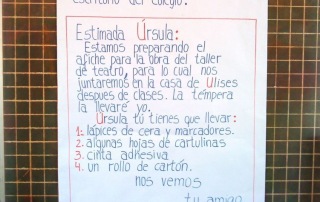 escritorio del colegio.
Estimada Úrsula:
Estamos preparando el
afiche para la obra del taller
de teatro, para lo cual nos
juntaremos en la casa de Ulises
despues de clases. La témpera
la llevaré yo.
Úrsula tú tienes que llevar:
1. lápices de cera y marcadores.
2. algunas hojas de cartulinas
3. cinta adhesiva
4. un rollo de cartón.
nos vemos
tu amigo